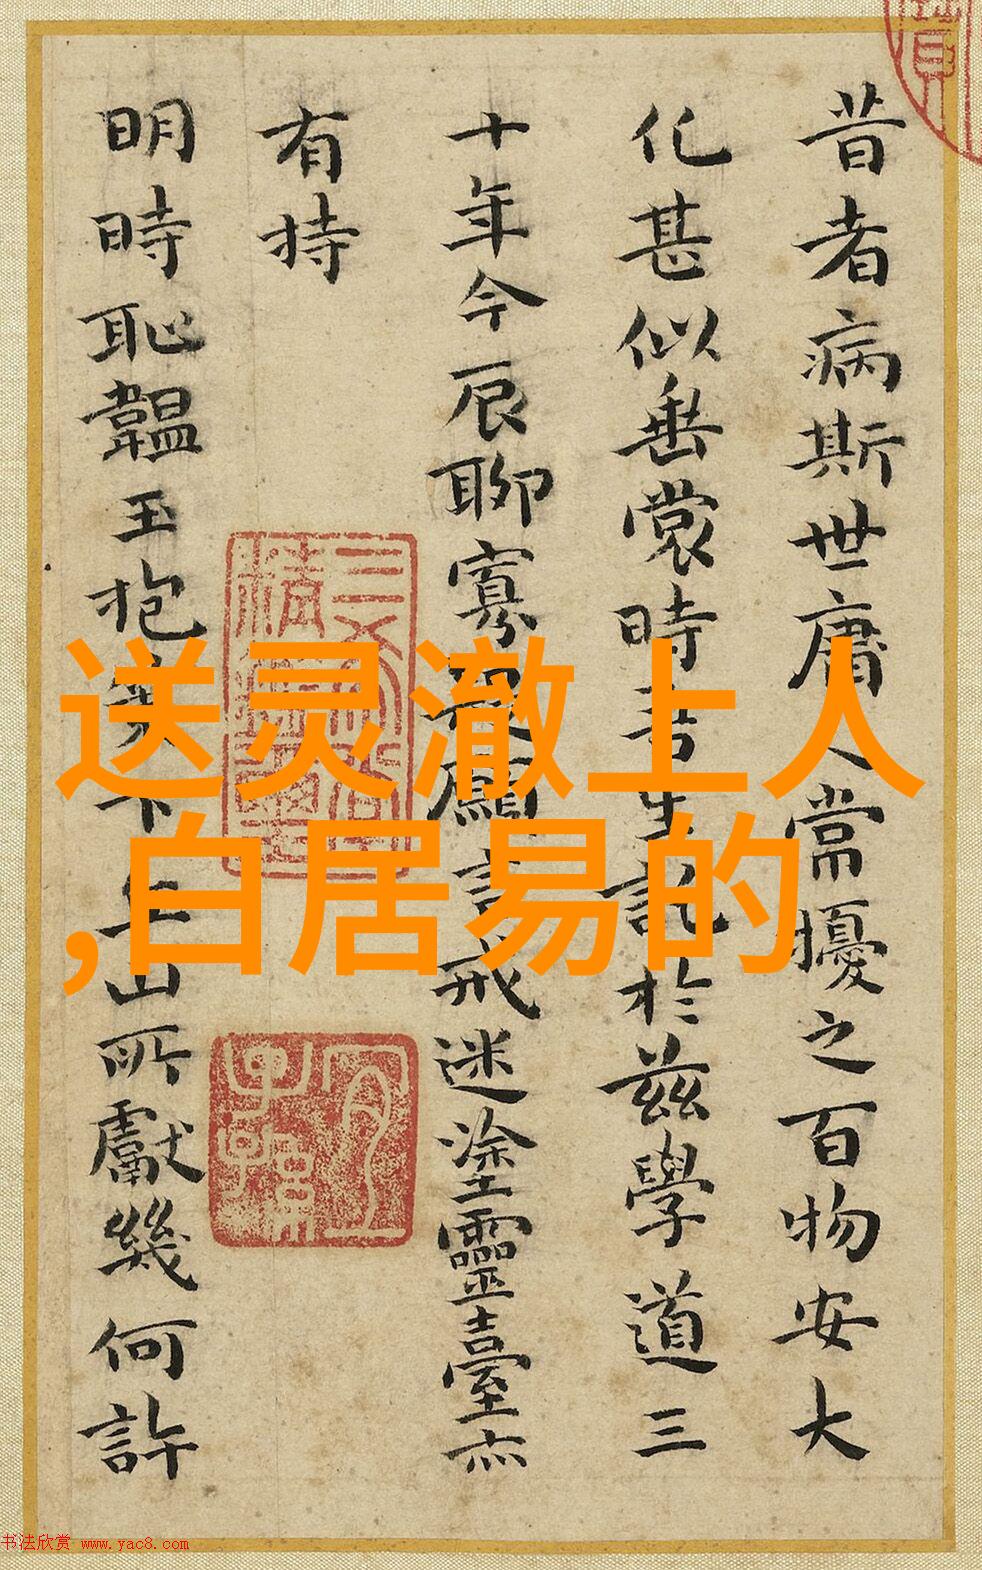 昔者病斯世庸人常擾之百物安大
化甚似垂裳時吾生託於茲學道三
十年今辰聊寡
願言戒迷塗靈臺亦
有持
明時恥韞玉抱
山所獻幾何許
送灵澈上人
,白居易的
书法欣赏 www.yac8.com